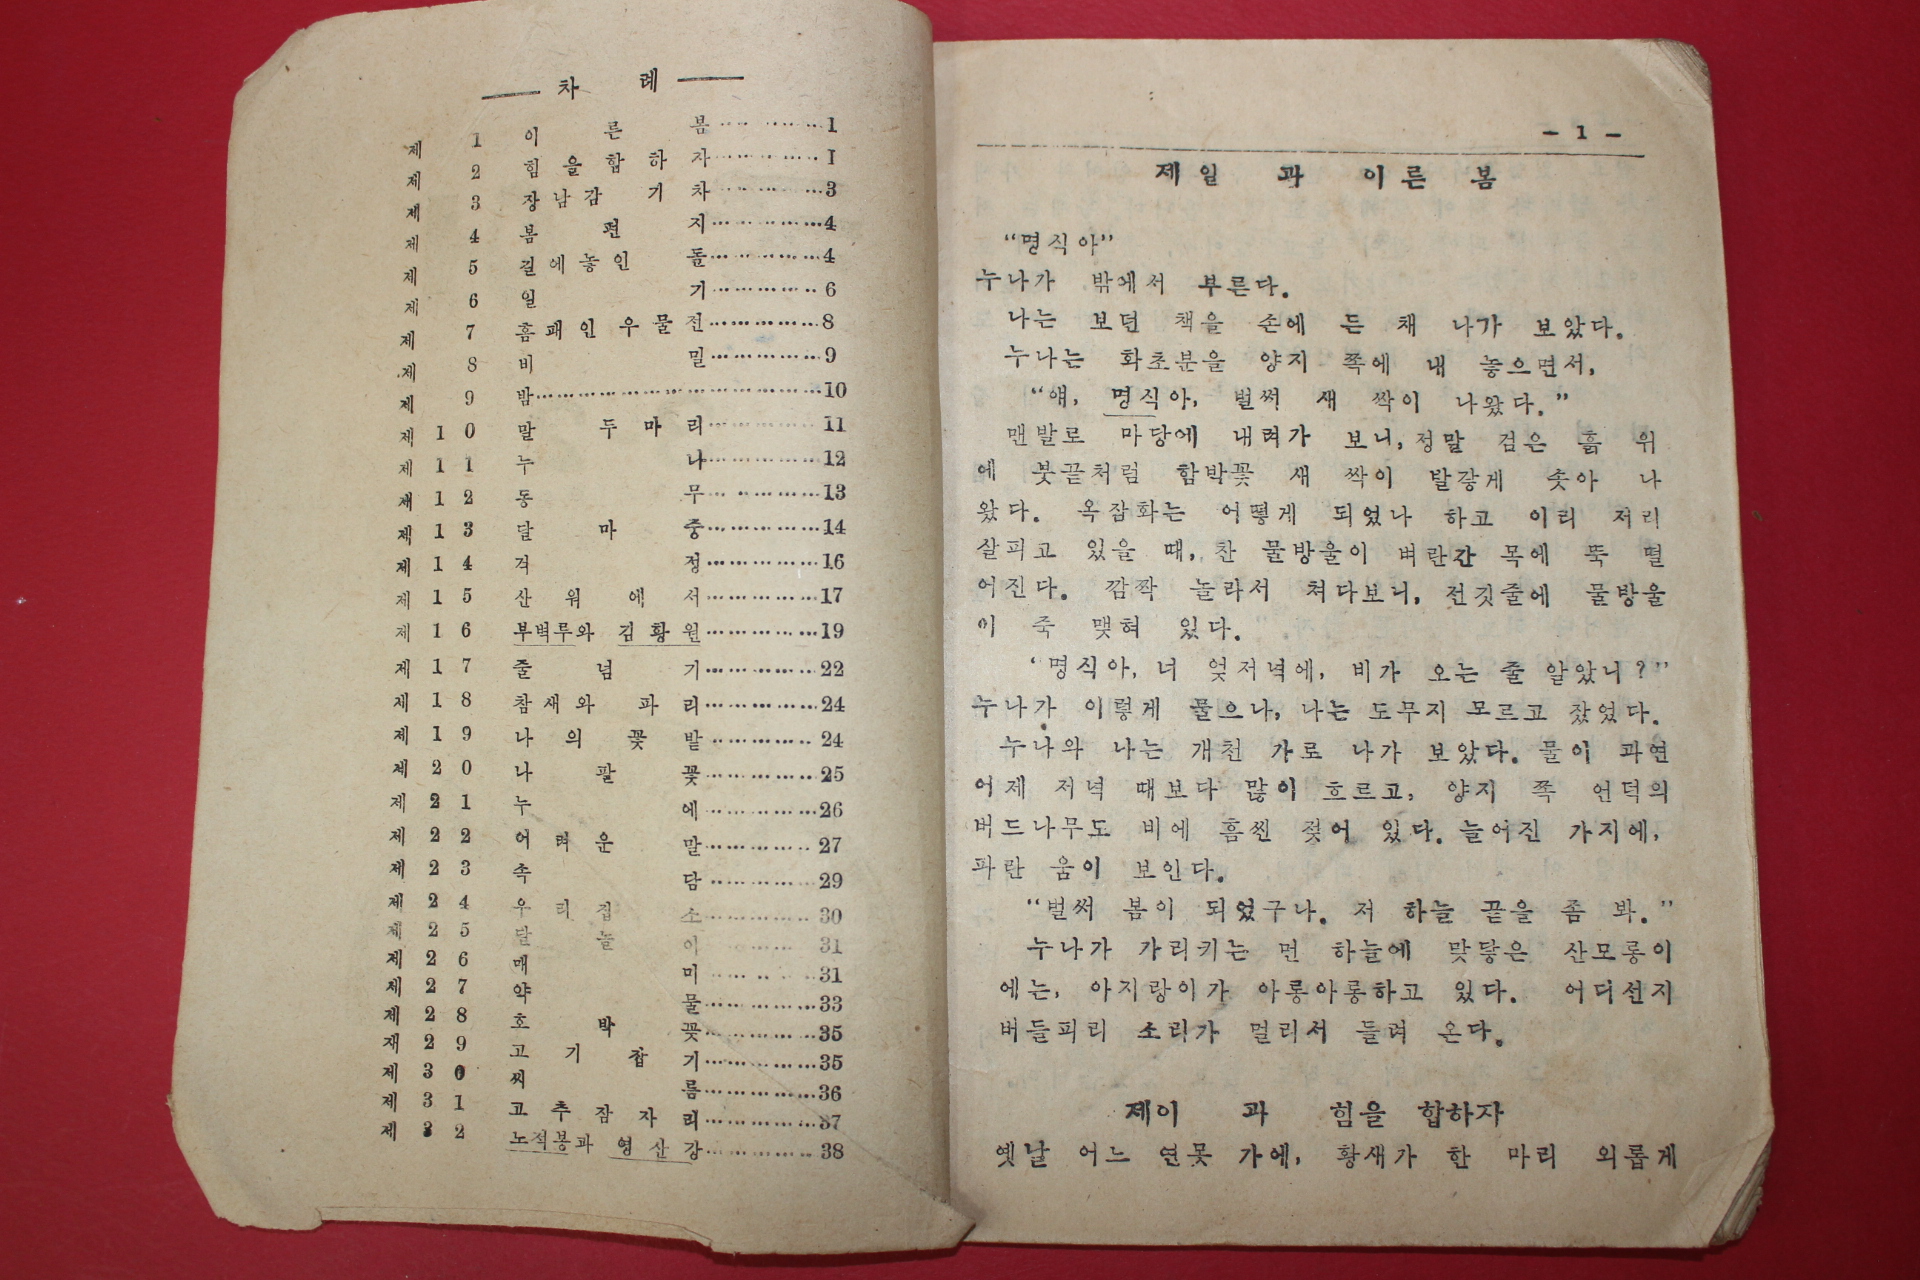 차 례
제 1 이 른 봄 1
제 2 힘 을 합 하 자 1
제 3 장 남 감 기 차 3
제 4 봄 편 지 4
제 5 길 에 놓 인 돌 4
제 6 일 기 6
제 7 흠 패 인 우 물 전 8
제 8 비 밀 9
제 9 밤 10
제 1 0 말 두 마 리 11
제 1 1 누 나 12
제 1 2 동 무 13
제 1 3 달 마 중 14
제 1 4 걱 정 16
제 1 5 산 위 에 서 17
제 1 6 부벽루와 김 황 원 19
제 1 7 줄 넘 기 22
제 1 8 참 새 와 파 리 24
제 1 9 나 의 꽃 밭 24
제 2 0 나 팔 꽃 25
제 2 1 누 에 26
제 2 2 어 려 운 말 27
제 2 3 속 담 29
제 2 4 우 리 집 소 30
제 2 5 달 놀 이 31
제 2 6 매 미 31
제 2 7 약 물 33
제 2 8 호 박 꽃 35
재 2 9 고 기 잡 기 35
제 3 0 씨 름 36
제 3 1 고 추 잠 자 리 37
제 3 2 노적봉과 영 산 강 38
- 1 -
제일 과 이른 봄
“명식아”
누나가 밖에서 부른다.
나는 보던 책을 손에 든 채 나가 보았다.
누나는 화초분을 양지 쪽에 내 놓으면서,
“얘, 명식아, 벌써 새 싹이 나왔다.”
맨발로 마당에 내려가 보니, 정말 검은 흙 위
에 붓끝처럼 함박꽃 새 싹이 발갛게 솟아 나
왔다. 옥잠화는 어떻게 되었나 하고 이리 저리
살피고 있을 때, 찬 물방울이 벼란간 목에 뚝 떨
어진다. 깜짝 놀라서 쳐다보니, 전깃줄에 물방울
이 죽 맺혀 있다.
‘명식아, 너 엊저녁에, 비가 오는 줄 알았니?”
누나가 이렇게 물으나, 나는 도무지 모르고 잤었다.
누나와 나는 개천 가로 나가 보았다. 물이 과연
어제 저녁 때보다 많이 흐르고, 양지 쪽 언덕의
버드나무도 비에 흠씬 젖어 있다. 늘어진 가지에,
파란 움이 보인다.
“벌써 봄이 되었구나. 저 하늘 끝을 좀 봐.”
누나가 가리키는 먼 하늘에 맞닿은 산모롱이
에는, 아지랑이가 아롱아롱하고 있다. 어디선지
버들피리 소리가 멀리서 들려 온다.
제이 과 힘을 합하자
옛날 어느 연못 가에, 황새가 한 마리 외롭게